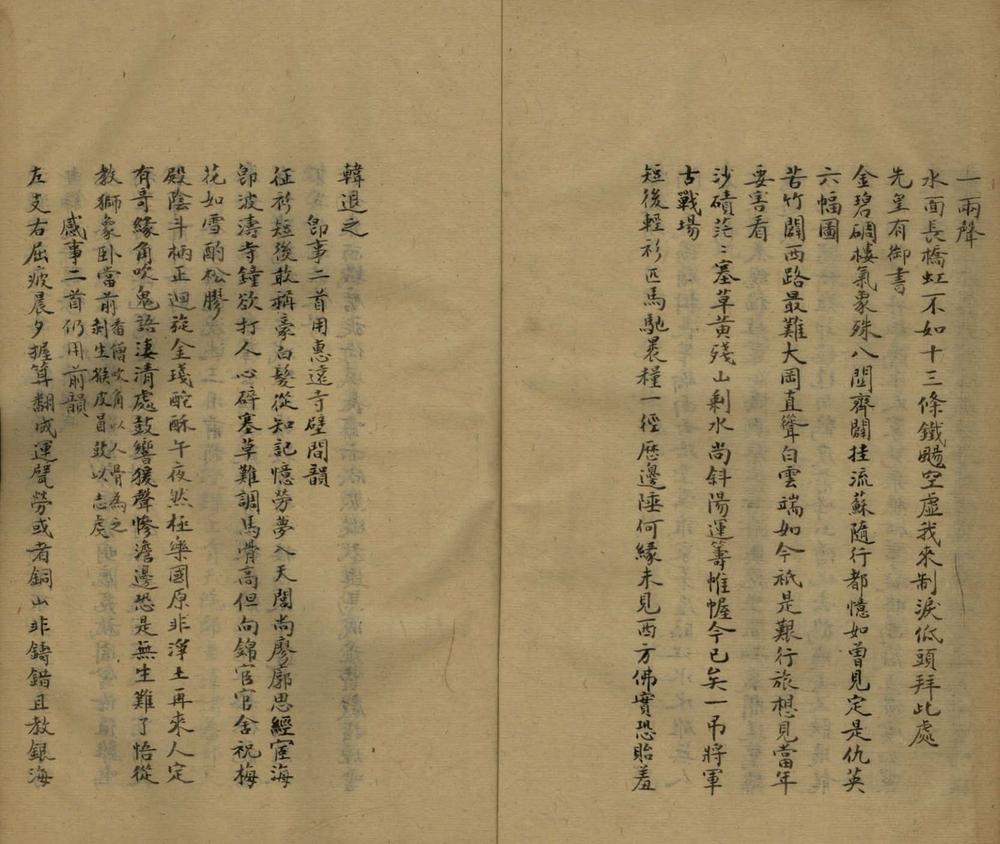 一兩聲
水面長橋虹一不如十三條鐵颺空虛我來制淚低頭拜此處
先皇有御書
金碧碉樓氣象殊八閶齊闢挂流蘇隨行都憶如曾見定是仇英
六幅圖
苦竹關西路最難大岡直聳白雲端如今祇是艱行旅想見當年
要害看
沙磧茫〻塞草黃殘山剩水尚斜陽運籌帷幄今已矣一吊將軍
古戰場
短後輕衫匹馬馳裹糧一徑歷邊陲何緣未見西方佛實恐貽羞
韓退之
即事二首用惠遠寺壁間韻
征衫短後敢稱豪白髮從知記憶勞夢入天閶尚廖廓思經宦海
即波濤寺鐘欲打人心碎塞草難調馬骨高但向錦官官舍祝梅
花如雪酌松膠
殿陰斗柄正迴旋金琖酡酥午夜然極樂國原非淨土再來人定
有哥緣角吹鬼語淒清處鼓響猨聲慘澹邊恐是無生難了悟從
教獅象卧當前番僧吹角以人骨為之
剝生猴皮冒鼓以志處
感事二首仍用前韻
左支右屈疲晨夕握算翻成運甓勞或者銅山非鑄錯且教銀海